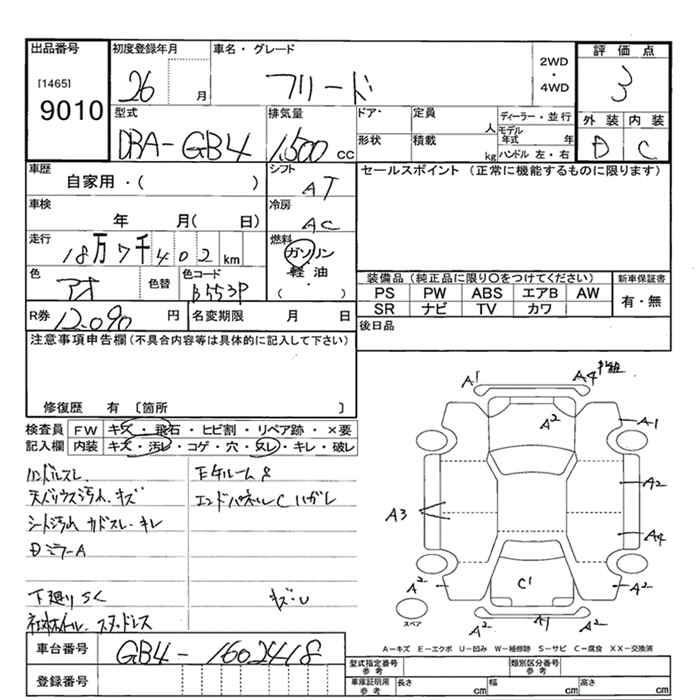 出品番号 初度登録年月 車名・グレード 評価点
[1465] 26 月 フリード 2WD ・ 4WD 3
9010
型式 排気量 ドア・ 定員 人 ディーラー・並行 外装 内装
DBA-GB4 1,500 CC 形状 積載 kg モデル年式 年 D C
ハンドル 左・右
車歴 シフト セールスポイント (正常に機能するものに限ります)
自家用・( ) AT
車検 冷房
年 月( 日) AC
走行 燃料
18万7千402km ガソリン
色 色替 色コード 軽油
アオ B553P ・
( )
装備品 (純正品に限り〇をつけてください) 新車保証書
PS PW ABS エアB AW 有・無
SR ナビ TV カワ
R券 12,090 円 名変期限 月 日 後日品
注意事項申告欄(不具合内容等は具体的に記入して下さい)
修復歴 有 〔箇所 〕
検査員 FW キズ・飛石・ヒビ割・リペア跡・×要
記入欄 内装 キズ・汚レ・コゲ・穴・スレ・キレ・破レ
ハンドルスレ
天.バックス汚れ.キズ エンドパネルCハガレ
シート汚れ カドスレ・キレ
DミラーA
下廻りSC キズ・U
社外ホイル.スタッドレス
A1 A4
A2 A1
A2
A3
A4
A2 C1 A2
A2 A1 A2
スペア
A-キズ E-エクボ U-凹み W-補修跡 S-サビ C-腐食 XX-交換済
車台番号 GB4-1602418 型式指定番号 参考 類別区分番号 参考
登録番号 車庫証明用 参考 長さ cm 幅 cm 高さ cm